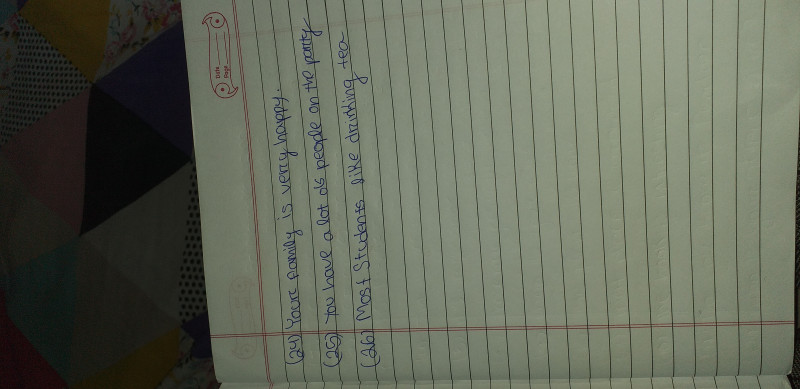 Date
Page
(24) Youre family is very happy.
(25) You have a lot ofs people on the party
(26) Most Students like drinking tea